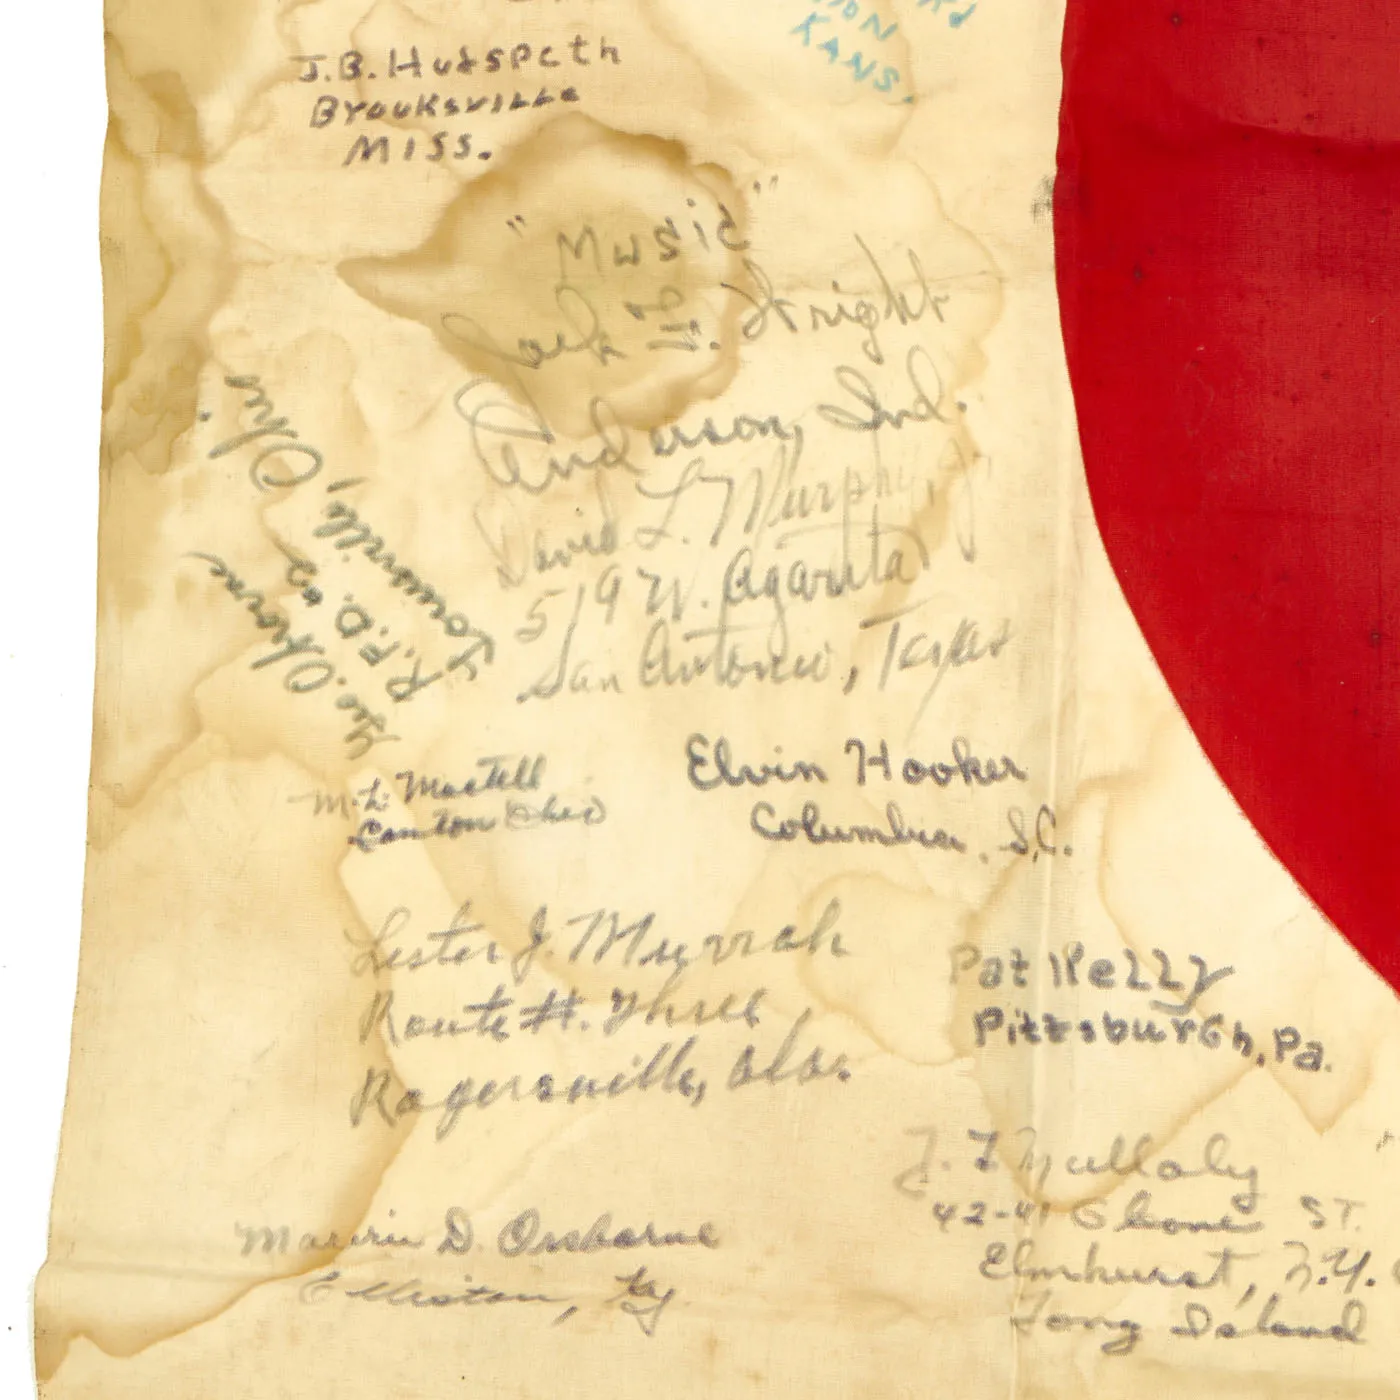 KANS.
J.B. Hudspeth
Brooksville
Miss.
"Music"
Jack L. Wright
Anderson, Ind.
David L. Murphy, Jr.
519 W. Agarita
San Antonio, Texas
Geo. Osborne
R.F.D. #2
Louisville, Ohio
M. L. Martell
Canton Ohio
Elvin Hooker
Columbia, S.C.
Lester J. Murrah
Route #. Three,
Rogersville, Ala.
Pat Kelly
Pittsburgh, Pa.
J. F. Mullaly
42-41 ST.
Elmhurst, N.Y.
Long Island
D. Osborne
Elliston, Ky.